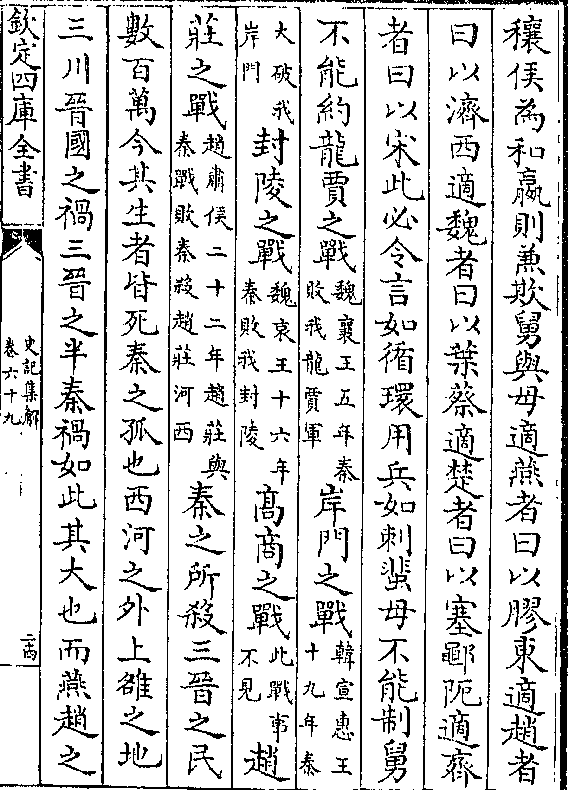 穰侯為和嬴則兼欺舅與母適燕者曰以膠東適趙者
曰以濟西適魏者曰以葉蔡適楚者曰以塞鄳阨適齊
者曰以宋此必令言如循環用兵如刺蜚母不能制舅
不能約龍賈之戰魏襄王五年秦敗我龍賈軍岸門之戰韓宣惠王十九年秦
大破我岸門封陵之戰魏哀王十六年秦敗我封陵髙商之戰此戰事不見趙
莊之戰趙肅侯二十二年趙莊與秦戰敗秦殺趙莊河西秦之所殺三晉之民
數百萬今其生者皆死秦之孤也西河之外上雒之地
三川晉國之禍三晉之半秦禍如此其大也而燕趙之
欽定四庫全書
史記集解
卷六十九
二十四